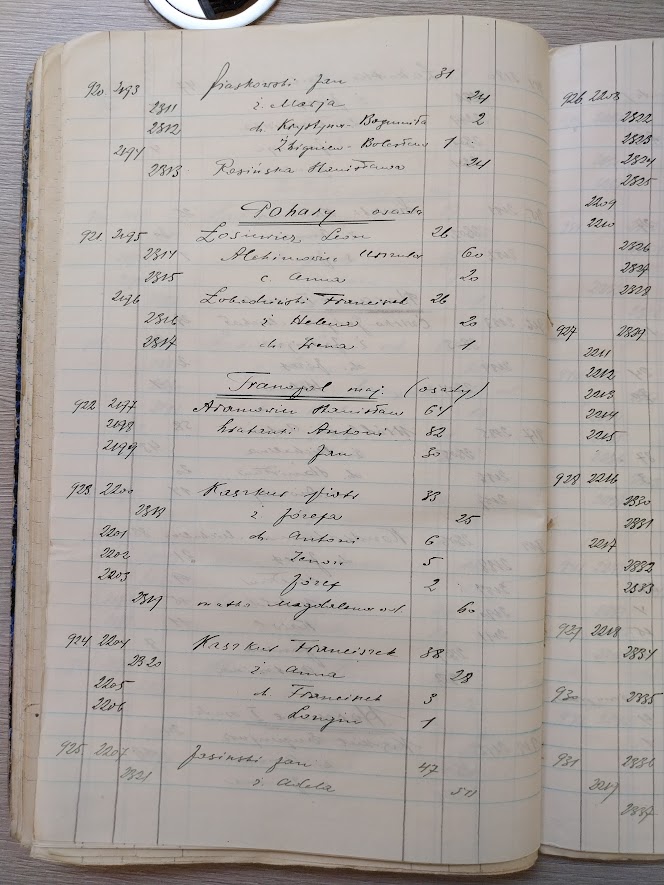 920 2193 Piaskowski Jan 31
2811 ż. Maria 24
2812 dz. Krystyna-Bogumiła 2
2194 Zbigniew-Bolesław 1
2813 Rosińska Stanisława 24
Pohary osada
921 2195 Losiewicz Leon 26
2814 Urszula 60
2815 c. Anna 20
2196 Franciszek 26
2816 ż Helena 20
2817 dz. Irena 1
maj. (osady)
922 2197 Adamowicz Stanisław 64
2198 Antoni 82
2199 Jan 30
923 2200 Kaszkur Piotr 33
2818 ż Józefa 25
2201 dz. Antoni 6
2202 Zenon 5
2203 Józef 2
2819 matka Magdalena 60
924 2204 Kaszkur Franciszek 38
2820 ż Anna 28
2205 dz. Franciszek 3
2206 Longin 1
925 2207 Jasiński Jan 47
2821 ż Adela 50
926 2208
2822
2823
2824
2825
2209
2210
2826
2827
2828
927 2829
2211
2212
2213
2214
2215
928 2216
2830
2831
2217
2832
2833
929 2218
2834
930 2835
931 2836
2219
2837